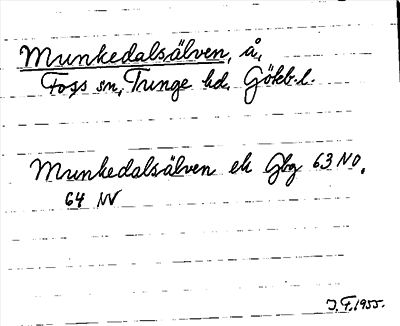 Munkedalsälven, å,
Foss sn, Tunge hd, Göteb.l.
Munkedalsälven ek Gbg 63 NO,
64 NV
J.F. 1955.